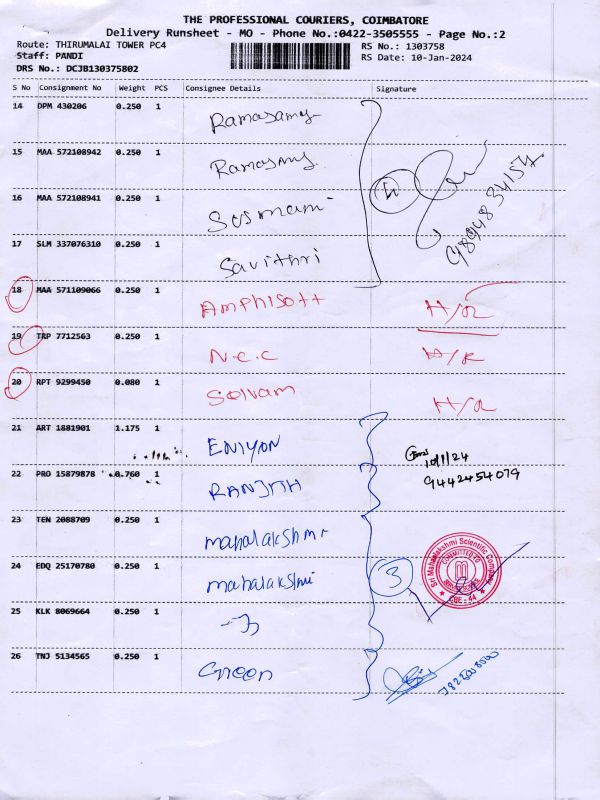 THE PROFESSIONAL COURIERS, COIMBATORE
Delivery Runsheet - MO - Phone No.:0422-3505555 - Page No.:2
Route: THIRUMALAI TOWER PC4 RS No.: 1303758
Staff: PANDI RS Date: 10-Jan-2024
DRS No.: DCJB130375802
S No Consignment No Weight PCS Consignee Details Signature
14 DPM 430206 0.250 1 Ramasamy
15 MAA 572108942 0.250 1 Ramasmy
16 MAA 572108941 0.250 1
4
17 SLM 337076310 0.250 1 Savithri
18 MAA 571109066 0.250 1 Amphisott H/R
19 TRP 7712563 0.250 1 N.C.C H/R
20 RPT 9299450 0.080 1 Selvam H/R
21 ART 1881901 1.175 1 ENIYAN
10/1/24
22 PRO 15879878 0.760 1 RANJITH 9442454079
23 TEN 2088709 0.250 1 mahalakshmi
24 EDQ 25170780 0.250 1 mahalakshmi 3
Sri Mahalakshmi Scientific Company
COMMITTED TO
CBE - 44
25 KLK 8069664 0.250 1
26 TNJ 5134565 0.250 1 Green